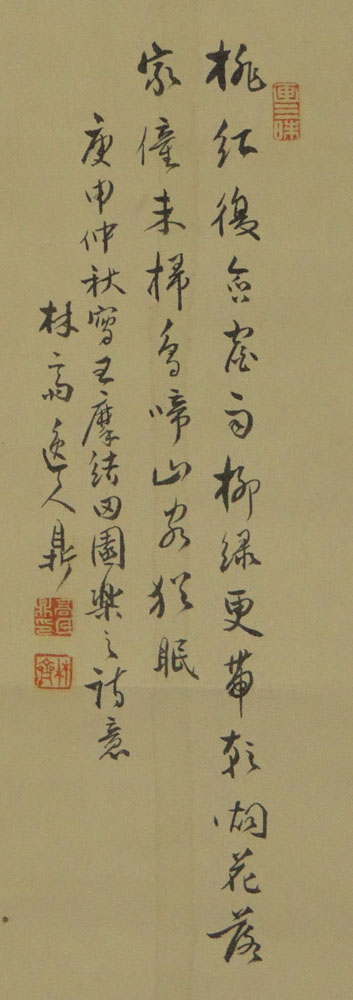 桃紅復含宿雨柳緑更帶朝烟花落
家僮未掃鳥啼山客猶眠
庚申仲秋寫王摩詰田園樂之詩意
林斎逸人鼎